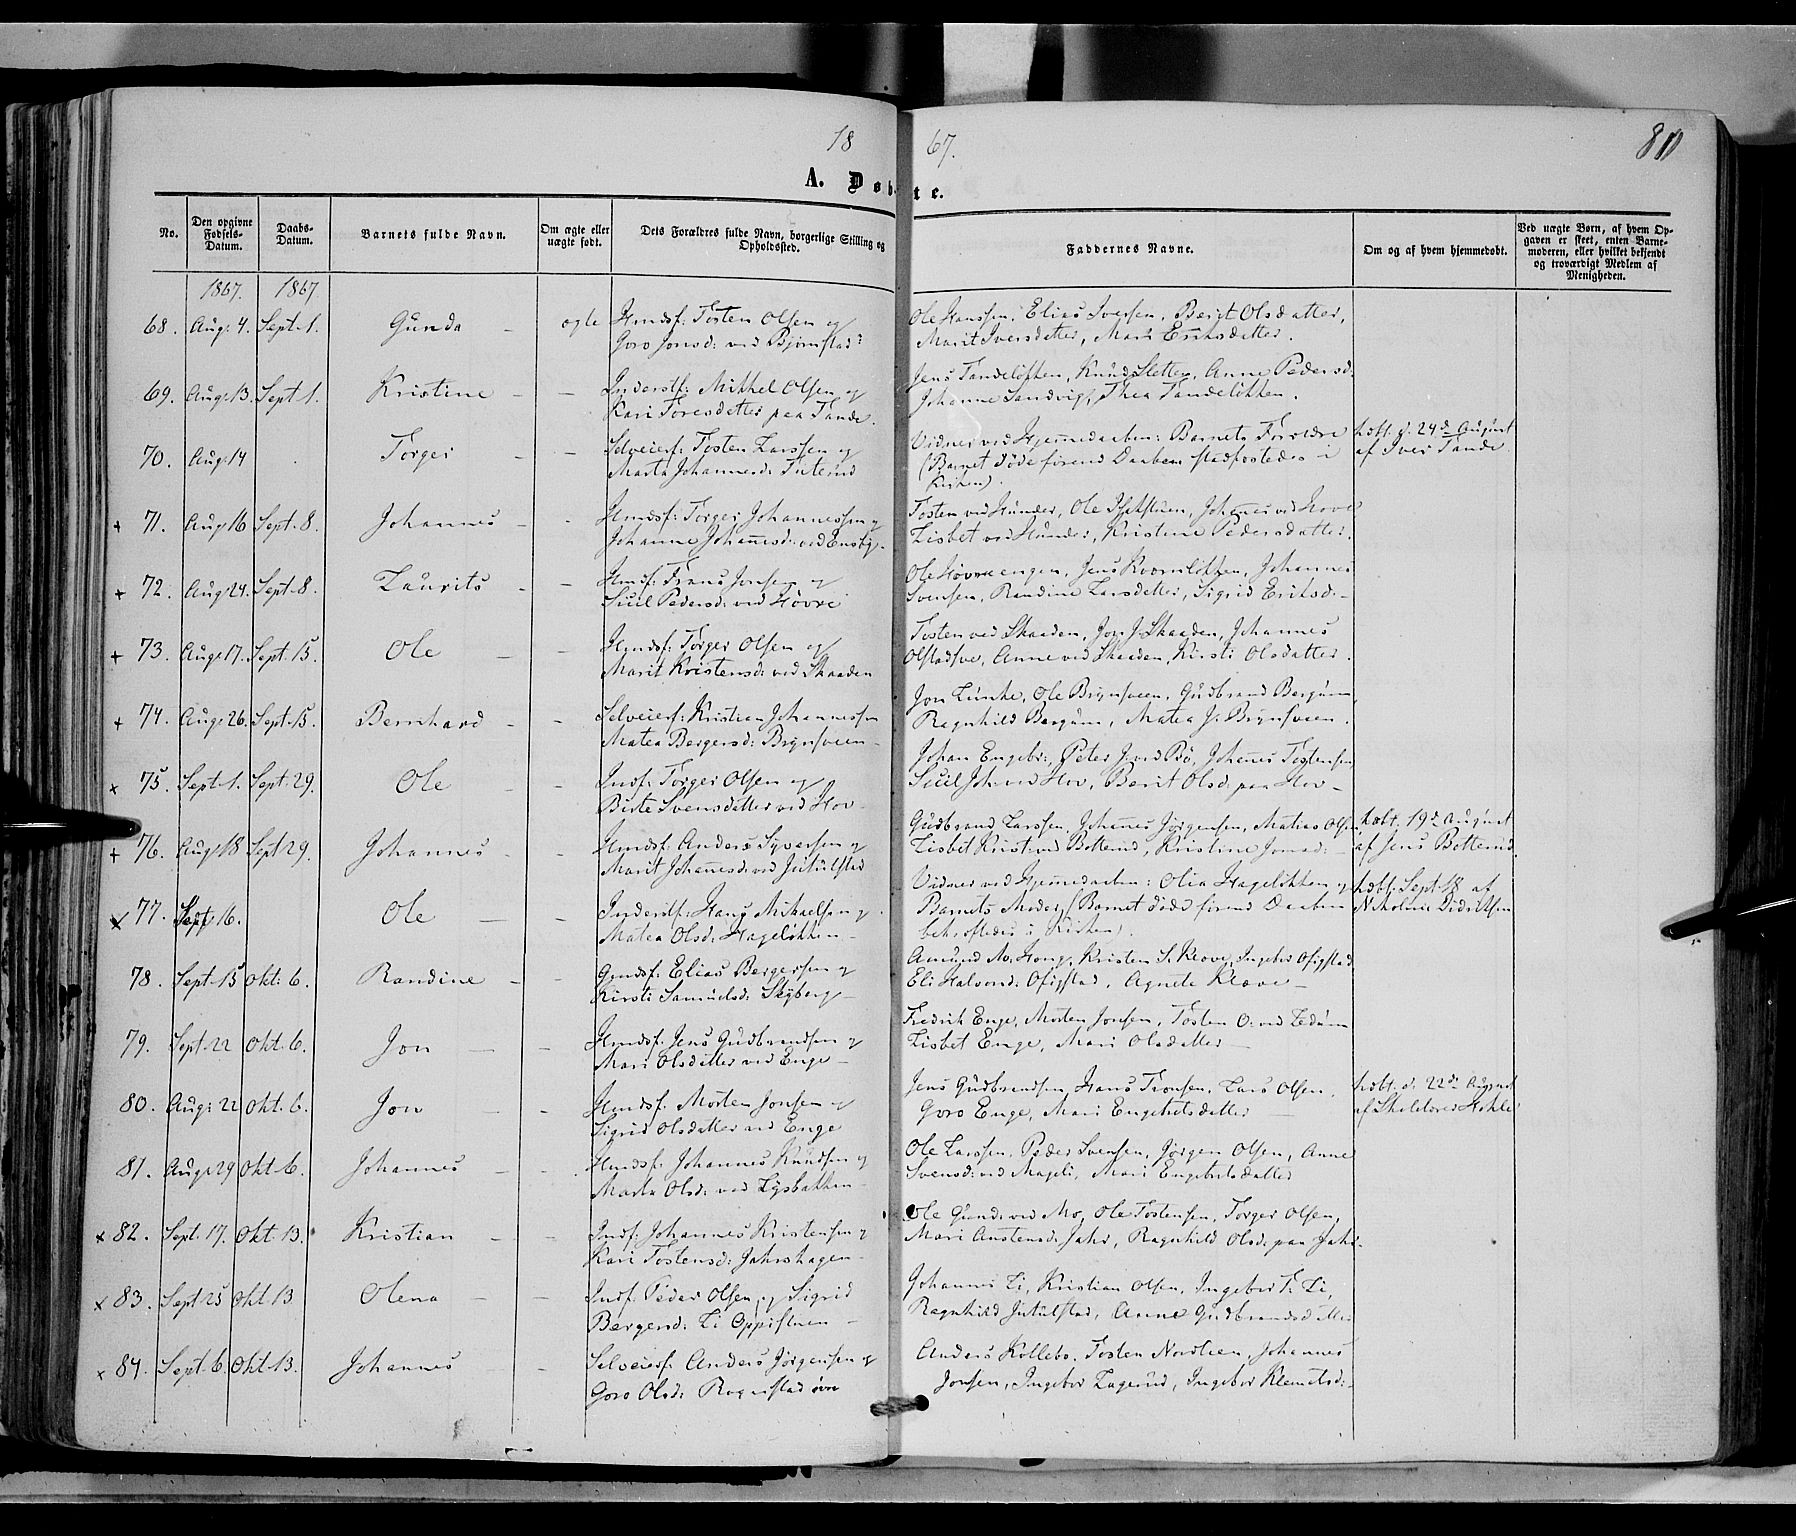 18 67. 80
A. Døbte.
No. Den opgivne Fødsels-Datum. Daabs-Datum. Barnets fulde Navn. Om ægte eller uægte født. Dets Forældres fulde Navn, borgerlige Stilling og Opholdssted. Faddernes Navne. Om og af hvem hjemmedøbt. Ved uægte Børn, af hvem Opgaven er skeet, enten Barnemoderen, eller hvilket bekjendt og troværdigt Medlem af Menigheden.
1867. 1867
68. Aug: 4. Sept. 1. Gunda - ægte Hmdsf: Tosten Olsen og Ole Hanssen, Elias Iversen, Berit Olsdatter,
Goro Jonsd: ved Bjørnstad Marit Iversdatter, Mari Eriksdatter.
69. Aug: 13. Sept. 1. Kristine - - Inderstf: Mikkel Olsen og Jens Tandeløkken, Knud Sletten, Anne Pedersd:
Kari Toresdatter paa Tande. Johanne Sandvig, Thea Tandeløkken.
70. Aug: 14 Torger - - Selveierf: Tosten Larssen og Vidner ved Hjemmedaaben: Barnets Forældre hdbt. d. 24de August
Marte Johannesd: Tuterud (Barnet døde førend Daaben stadfæstedes i af Iver Tande.
Kirken).
+ 71. Aug: 16 Sept. 8. Johannes - - Hmdsf: Torger Johannessen og Tosten ved Hunder, Ole, Johannes ved Hove
Johanne Johannesd: ved Ensby. Lisbet ved Hunder, Kristine Pedersdatter.
+ 72. Aug: 24. Sept. 8. Laurits - - Hmsf: Frans Jonsen og Ole Høvreengen, Jens Kvernløkken, Johannes
Siril Pedersd: ved Høvre Svensen, Randine Larsdatter, Sigrid Eriksd: -
+ 73. Aug: 17. Sept. 15. Ole - - Hmdsf: Torger Olsen og Tosten ved Skaaden, Jon J. Skaaden, Johannes
Marit Kristensd: ved Skaaden Olstadsve, Anne ved Skaaden, Kirsti Olsdatter.
+ 74. Aug: 26. Sept. 15. Bernhard - - Selveierf: Kristian Johannessen Jon Lunke, Ole Brynsveen, Gudbrand Bergum
Matea Bergersd: Brynsveen - Ragnhild Bergum, Matea J. Brynsveen.
x 75. Sept. 1. Sept. 29. Ole - - Indf: Torger Olsen og Johan Engebr:, Peter J. ved Bø, Johannes Tostensen
Birte Svensdatter ved Hov - Siril Joh: ved Hov, Berit Olsd: paa Hov -
+ 76. Aug: 18 Sept 29. Johannes - - Hmdsf: Anders Syversen og Gudbrand Larssen, Johannes Jørgensen, Matias Olsen, hdbt. 19de August
Marit Johannesd: ved Jutulstad Lisbet Krist: ved Botterud, Kristine Jonsd: - af Jens Botterud
x 77. Sept 16. Ole - - Inderstf: Hans Mikaelsen og Vidner ved Hjemmedaaben: Olia Hageløkken og hdbt. Sept. 18 af
Matea Olsd: Hageløkken - Barnets Moder, (Barnet døde førend Daaben Nikoline Didriksen
bekræftedes i Kirken).
78. Sept. 15 Okt: 6. Randine - - Gmdsf: Elias Bergersen og Amund M. Hong, Kristen S. Klove, Ingebor Ofigstad
Kirsti Samuelsd: Skyberg - Eli Halvord: Ofigstad, Agnete Klove -
79. Sept 22 Okt. 6. Jon - - Hmdsf: Jens Gudbrandsen og Fredrik Enge, Morten Jonsen, Tosten O: ved Ledum
Mari Olsdatter ved Enge - Lisbet Enge, Mari Olsdatter -
80. Aug: 22 Okt. 6. Jon - - Hmdsf. Morten Jonsen og Jens Gudbrandsen, Hans Tronsen, Lars Olsen, hdbt. d. 22de August
Sigrid Olsdatter ved Enge Goro Enge, Mari Engebretsdatter - af Skolelærer Hohle
81. Aug: 29 Okt. 6. Johannes - - Hmdsf: Johannes Knudsen og Ole Larssen, Peder Svensen, Jørgen Olsen, Anne
Marta Olsd: ved Lysbakken - Svensd: ved Mageli, Mari Engebretsdatter
x 82. Sept. 17. Okt. 13. Kristian - - Indf: Johannes Kristensen og Ole Gund: ved Mo, Ole Tostensen, Torger Olsen,
Kari Tostensd: Jahrshagen - Mari Austensd: Jahr, Ragnhild Olsd: paa Jahr -
x 83. Sept 25 Okt 13 Olena - - Indf: Peder Olsen og Sigrid Johannes Li, Kristian Olsen, Ingebor T. Li,
Bergersd: Li Oppistuen - Ragnhild Jutulstad, Anne Gudbrandsdatter
x 84. Sept. 6 Okt. 13. Johannes - - Selveierf: Anders Jørgensen og Anders Kollebo, Tosten Nordlien, Johannes
Goro Olsd: Rognstad øvre Jonsen, Ingebor Lagerud, Ingebor Klemetsd: -